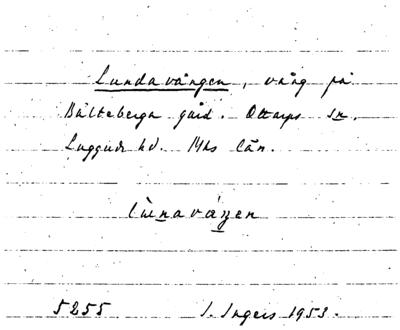 Lundavången, vång på
Bälteberga gård. Ottarps sn.
Luggude hd. Mhs län.
lùnavåŋen
5255 I. Ingers 1953.